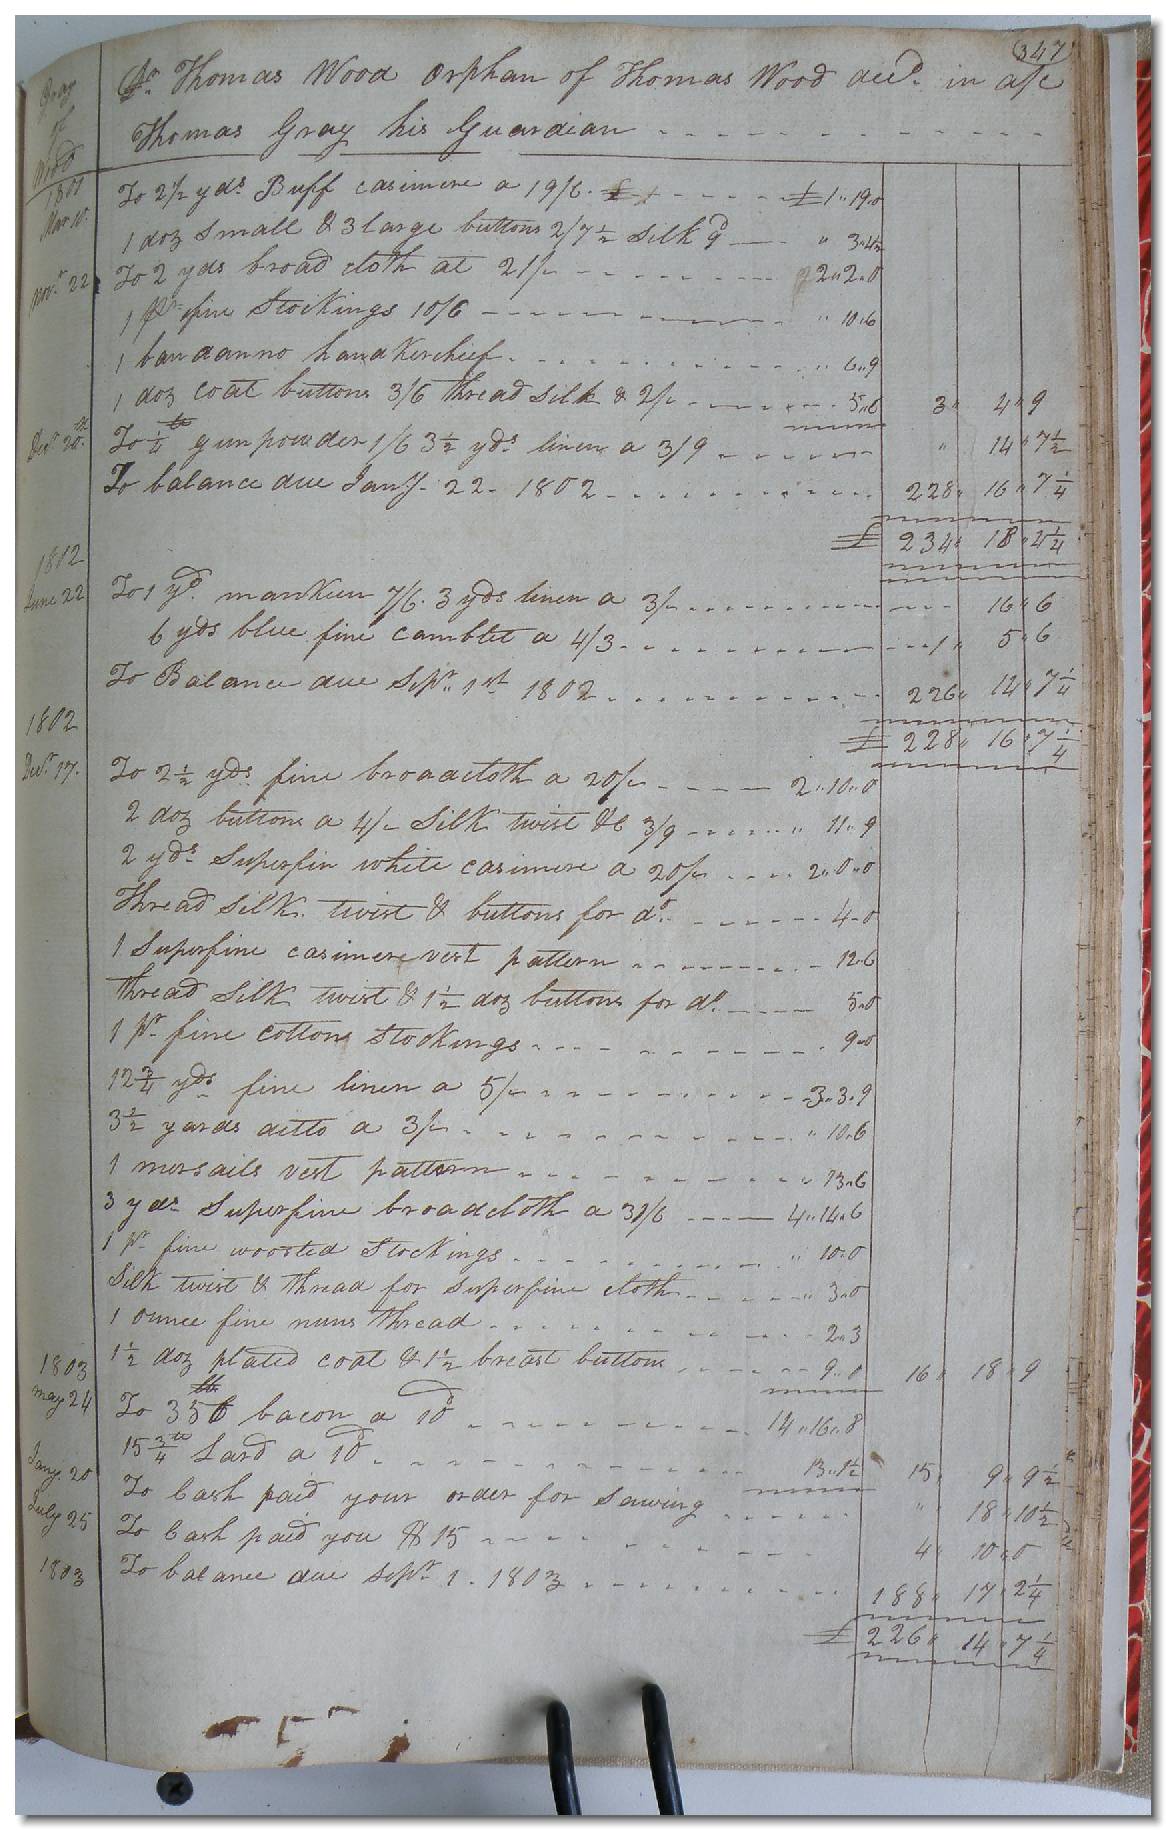 347
Gray
of
Wood
Dr. Thomas Wood Orphan of Thomas Wood decd. in a/c
Thomas Gray his Guardian
1801
Mar 10. To 2 1/2 yds Buff casimere a 19/6. £1"19.0
1 doz small & 3 large buttons 2/7 1/2 silk 9d " 3"4 1/2
Novr. 22 To 2 yds broad cloth at 21/- 2"2"0
1 pr fine Stockings 10/6 " 10"6
1 bandanno handkerchief " 6"9
1 doz coat buttons 3/6 thread silk & 2/- 5"6 3" 4"9
Decr 20th. To 1/4 lb gunpowder 1/6 3 1/2 yds linen a 3/9 " 14"7 1/2
To balance due Jany. 22. 1802 228" 16"7 1/4
£ 234" 18"4 1/4
1802
June 22 To 1 yd. mankeen 7/6. 3 yds linen a 3/- 16"6
6 yds blue fine camblet a 4/3 1" 5"6
To Balance due Sepr. 1st 1802 226" 14"7 1/4
£ 228" 16"7 1/4
1802
Decr 17. To 2 1/2 yds fine broadcloth a 20/- 2"10"0
2 doz buttons a 4/- Silk twist &c 3/9 " 11"9
2 yds Superfin white casimere a 20/- 2"0"0
Thread silk twist & buttons for do. 4"0
1 Superfine casimere vest pattern 12"6
thread silk twist & 1 1/2 doz buttons for do. 5"0
1 pr fine cottons Stockings 9"0
12 3/4 yds fine linen a 5/- 3"3"9
3 1/2 yards ditto a 3/- " 10"6
1 mersails vest pattern " 13"6
3 yds Superfine broadcloth a 31/6 4"14"6
1 pr fine woosted Stockings " 10"0
Silk twist & thread for superfine cloth " 3"0
1 ounce fine nuns thread 2"3
1 1/2 doz plated coat & 1 1/2 breast buttons 9"0 16" 18"9
1803
May 24 To 356 lb bacon a 10d 14"16"8
15 3/4 lb Lard a 10d 13"1 1/2 15" 9"9 1/2
Jany. 20 To Cash paid your order for sawing " 18"10 1/2
July 25 To Cash paid you $15 4" 10"0
1803 To balance due Sepr 1. 1803 188" 17"2 1/4
£ 226" 14"7 1/4